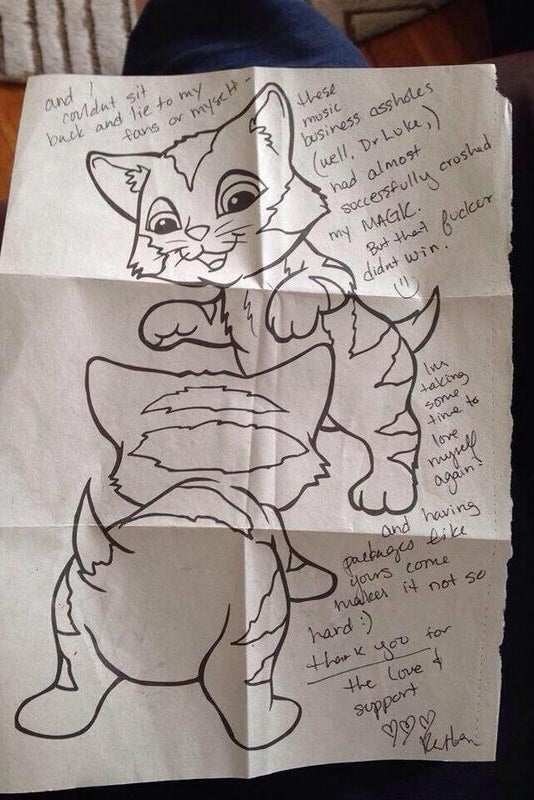 and I
couldnt sit
back and lie to my
fans or myself -
these
music
business assholes
(well, Dr Luke,)
had almost
successfully crushed
my MAGIC.
But that fucker
didnt win.
:)
Im
taking
some
time to
love
myself
again!
and having
packages like
yours come
makes it not so
hard :)
thank you for
the love &
support
♡♡♡